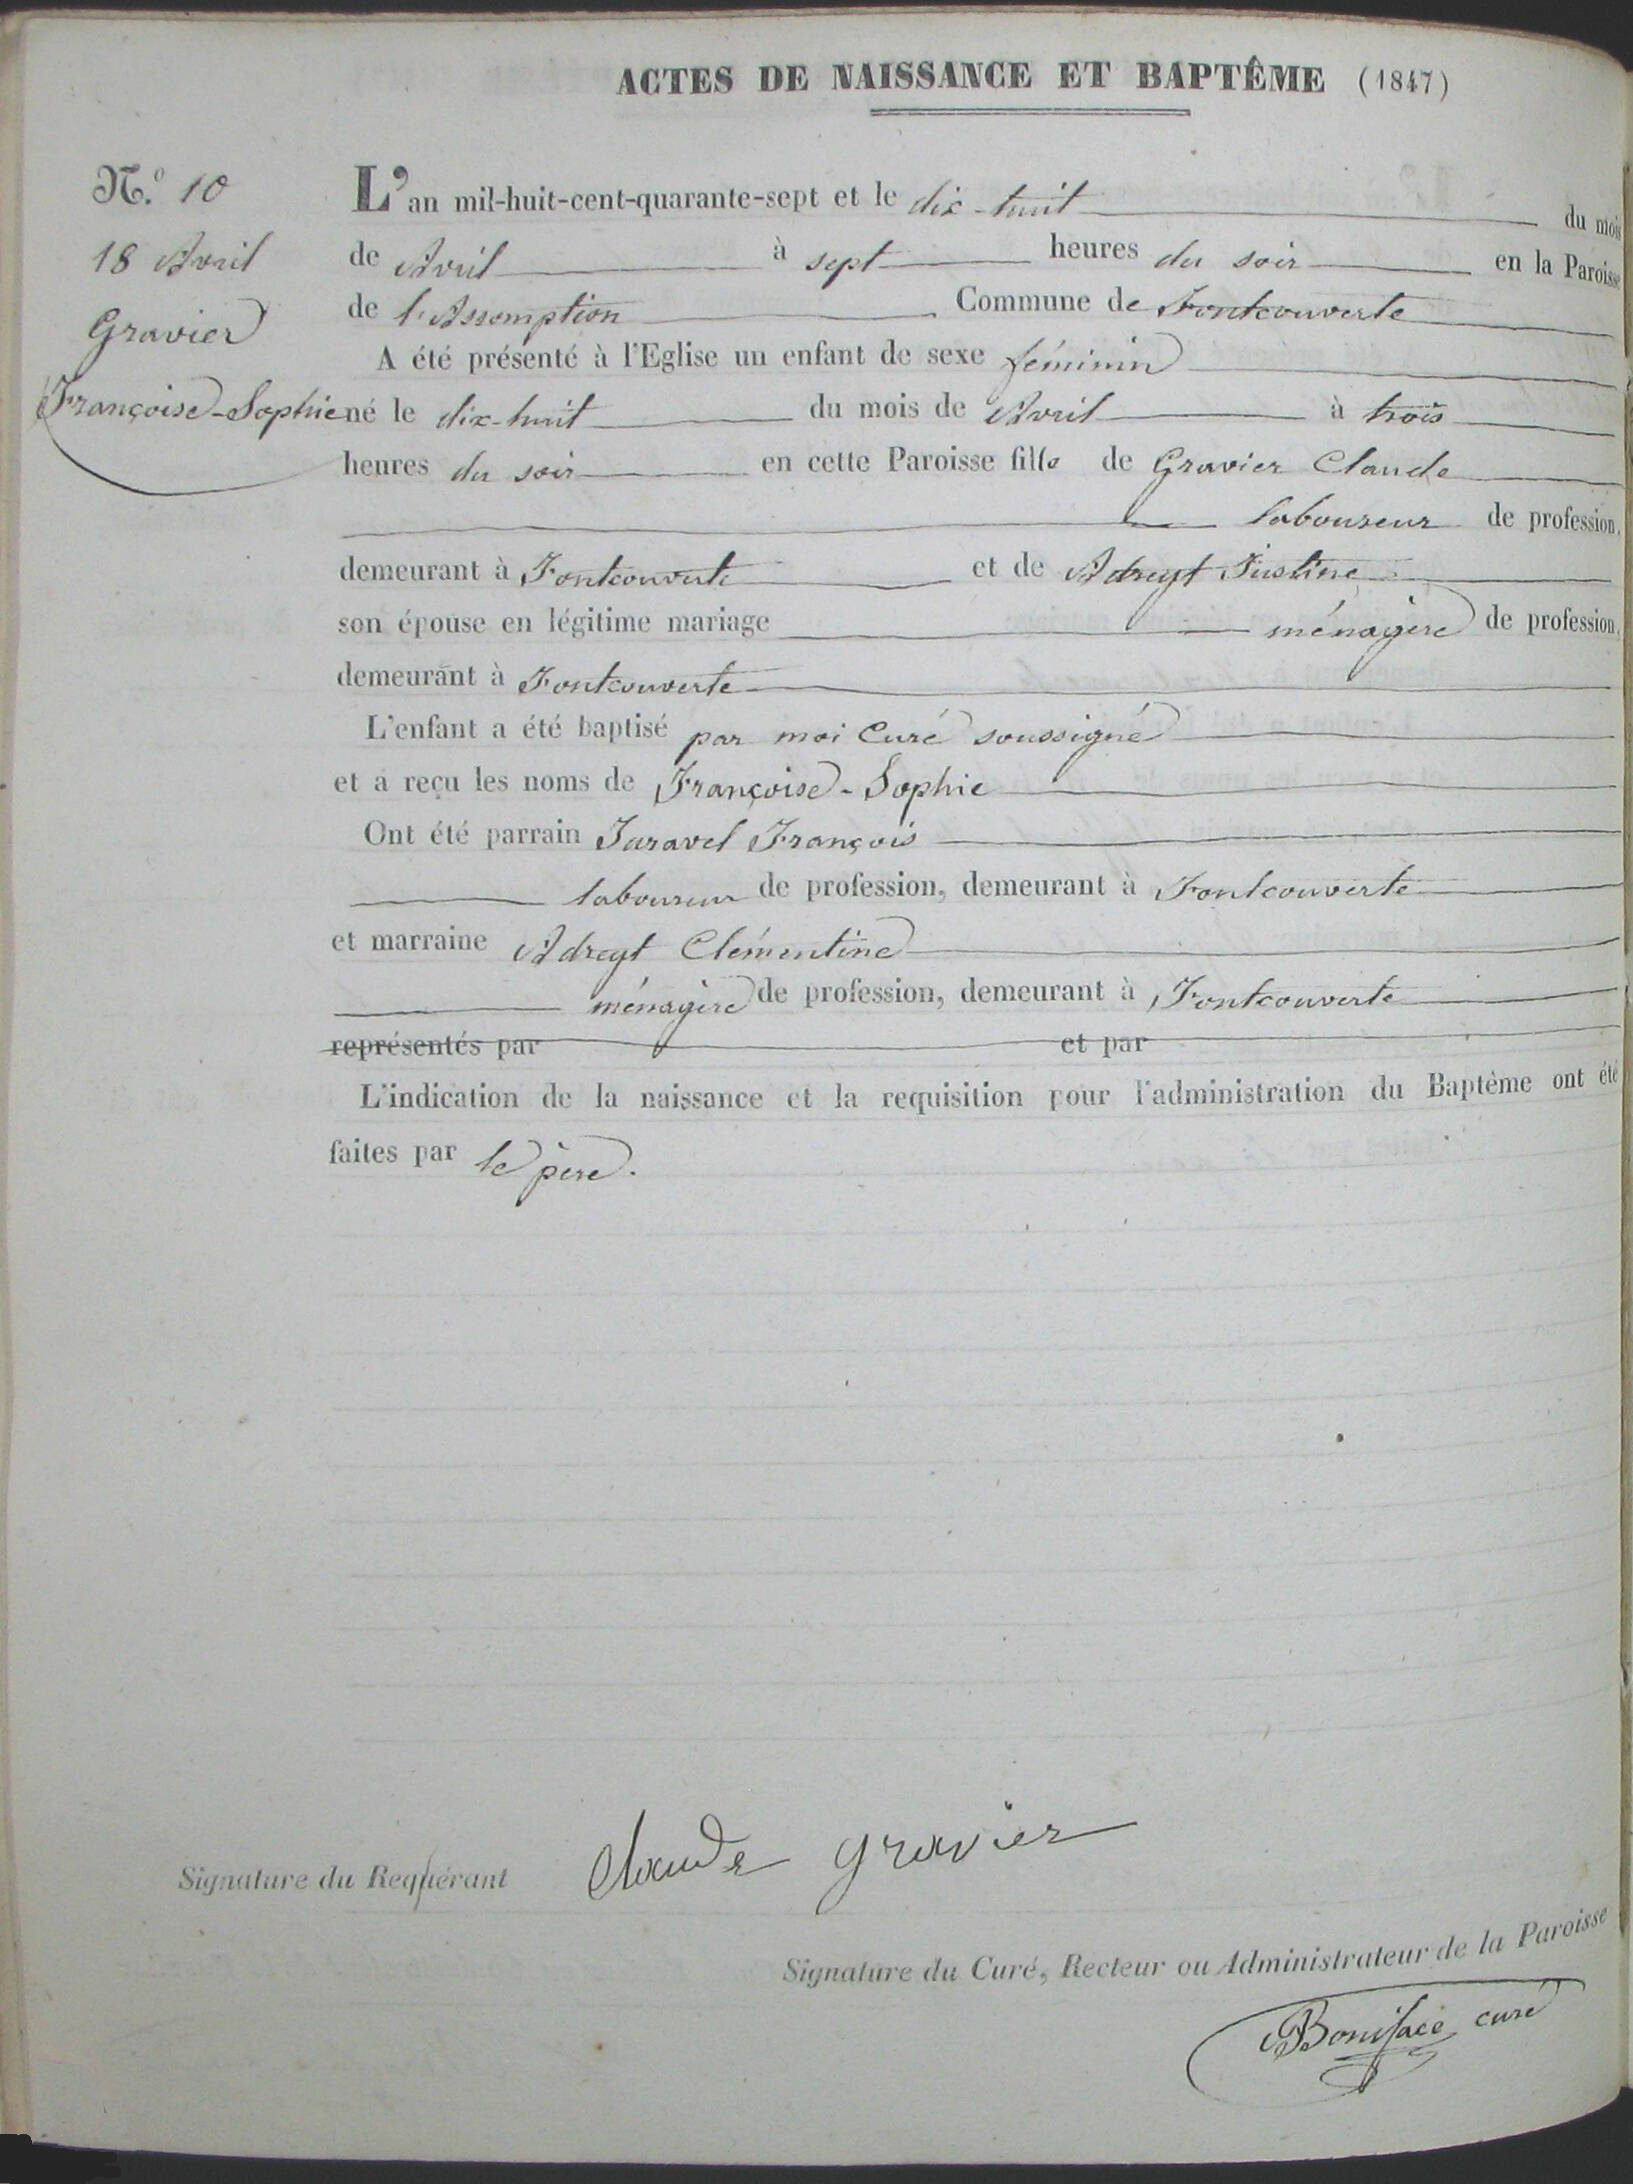 ACTES DE NAISSANCE ET BAPTÊME (1847)
N.º 10
18 Avril
Gravier
Françoise-Sophie
L'an mil-huit-cent-quarante-sept et le dix-huit du mois
de Avril à sept heures du soir en la Paroisse
de l'Assomption Commune de Fontcouverte
A été présenté à l'Eglise un enfant de sexe féminin
né le dix-huit du mois de Avril à trois
heures du soir en cette Paroisse fille de Gravier Claude
laboureur de profession,
demeurant à Fontcouverte et de Adreyt Justine
son épouse en légitime mariage ménagère de profession,
demeurant à Fontcouverte
L'enfant a été baptisé par moi Curé soussigné
et a reçu les noms de Françoise-Sophie
Ont été parrain Jaravel François
laboureur de profession, demeurant à Fontcouverte
et marraine Adreyt Clémentine
ménagère de profession, demeurant à Fontcouverte
représentés par et par
L'indication de la naissance et la requisition pour l'administration du Baptême ont été
faites par le père.
Signature du Requérant Claude gravier
Signature du Curé, Recteur ou Administrateur de la Paroisse
Boniface curé